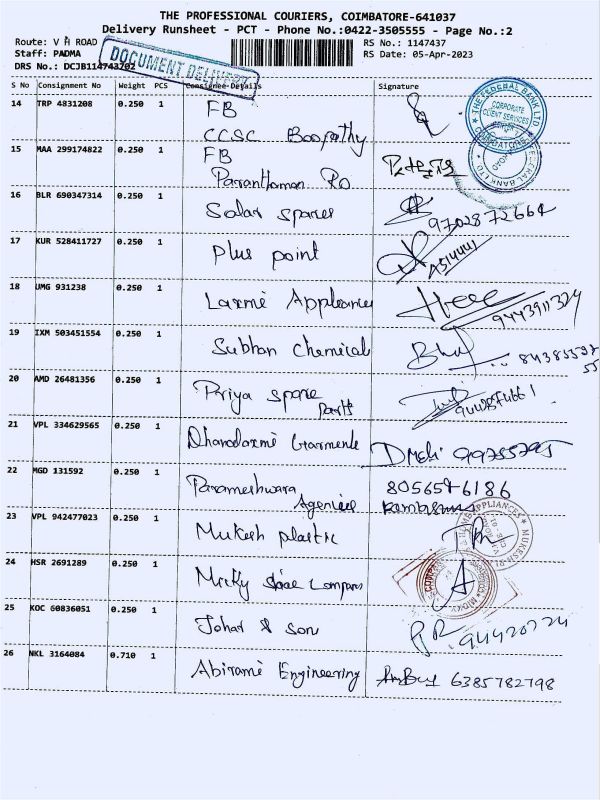 THE PROFESSIONAL COURIERS, COIMBATORE-641037
Delivery Runsheet - PCT - Phone No.:0422-3505555 - Page No.:2
Route: V H ROAD RS No.: 1147437
Staff: PADMA RS Date: 05-Apr-2023
DRS No.: DCJB114743702
DOCUMENT DELIVERY
S No Consignment No Weight PCS Consignee Details Signature
14 TRP 4831208 0.250 1 FB
CCSC Boopathy
THE FEDERAL BANK LTD
CORPORATE
CLIENT SERVICES
15 MAA 299174822 0.250 1 FB
Paranthaman Ro
16 BLR 690347314 0.250 1 Solar spares 9702872664
17 KUR 528411727 0.250 1 Plus point
18 UMG 931238 0.250 1 Laxmi Appliances 9443911324
19 IXM 503451554 0.250 1 Subhan Chemicals
20 AMD 26481356 0.250 1 Priya spare
parts
21 VPL 334629565 0.250 1 Dhanalaxmi Garments
22 MGD 131592 0.250 1 Parameshwara 8056586186
Agencies
23 VPL 942477023 0.250 1 Mukesh plastic
24 HSR 2691289 0.250 1 Micky
25 KOC 60836051 0.250 1 Johar & Son
26 NKL 3164084 0.710 1 Abirami Engineering 6385782798